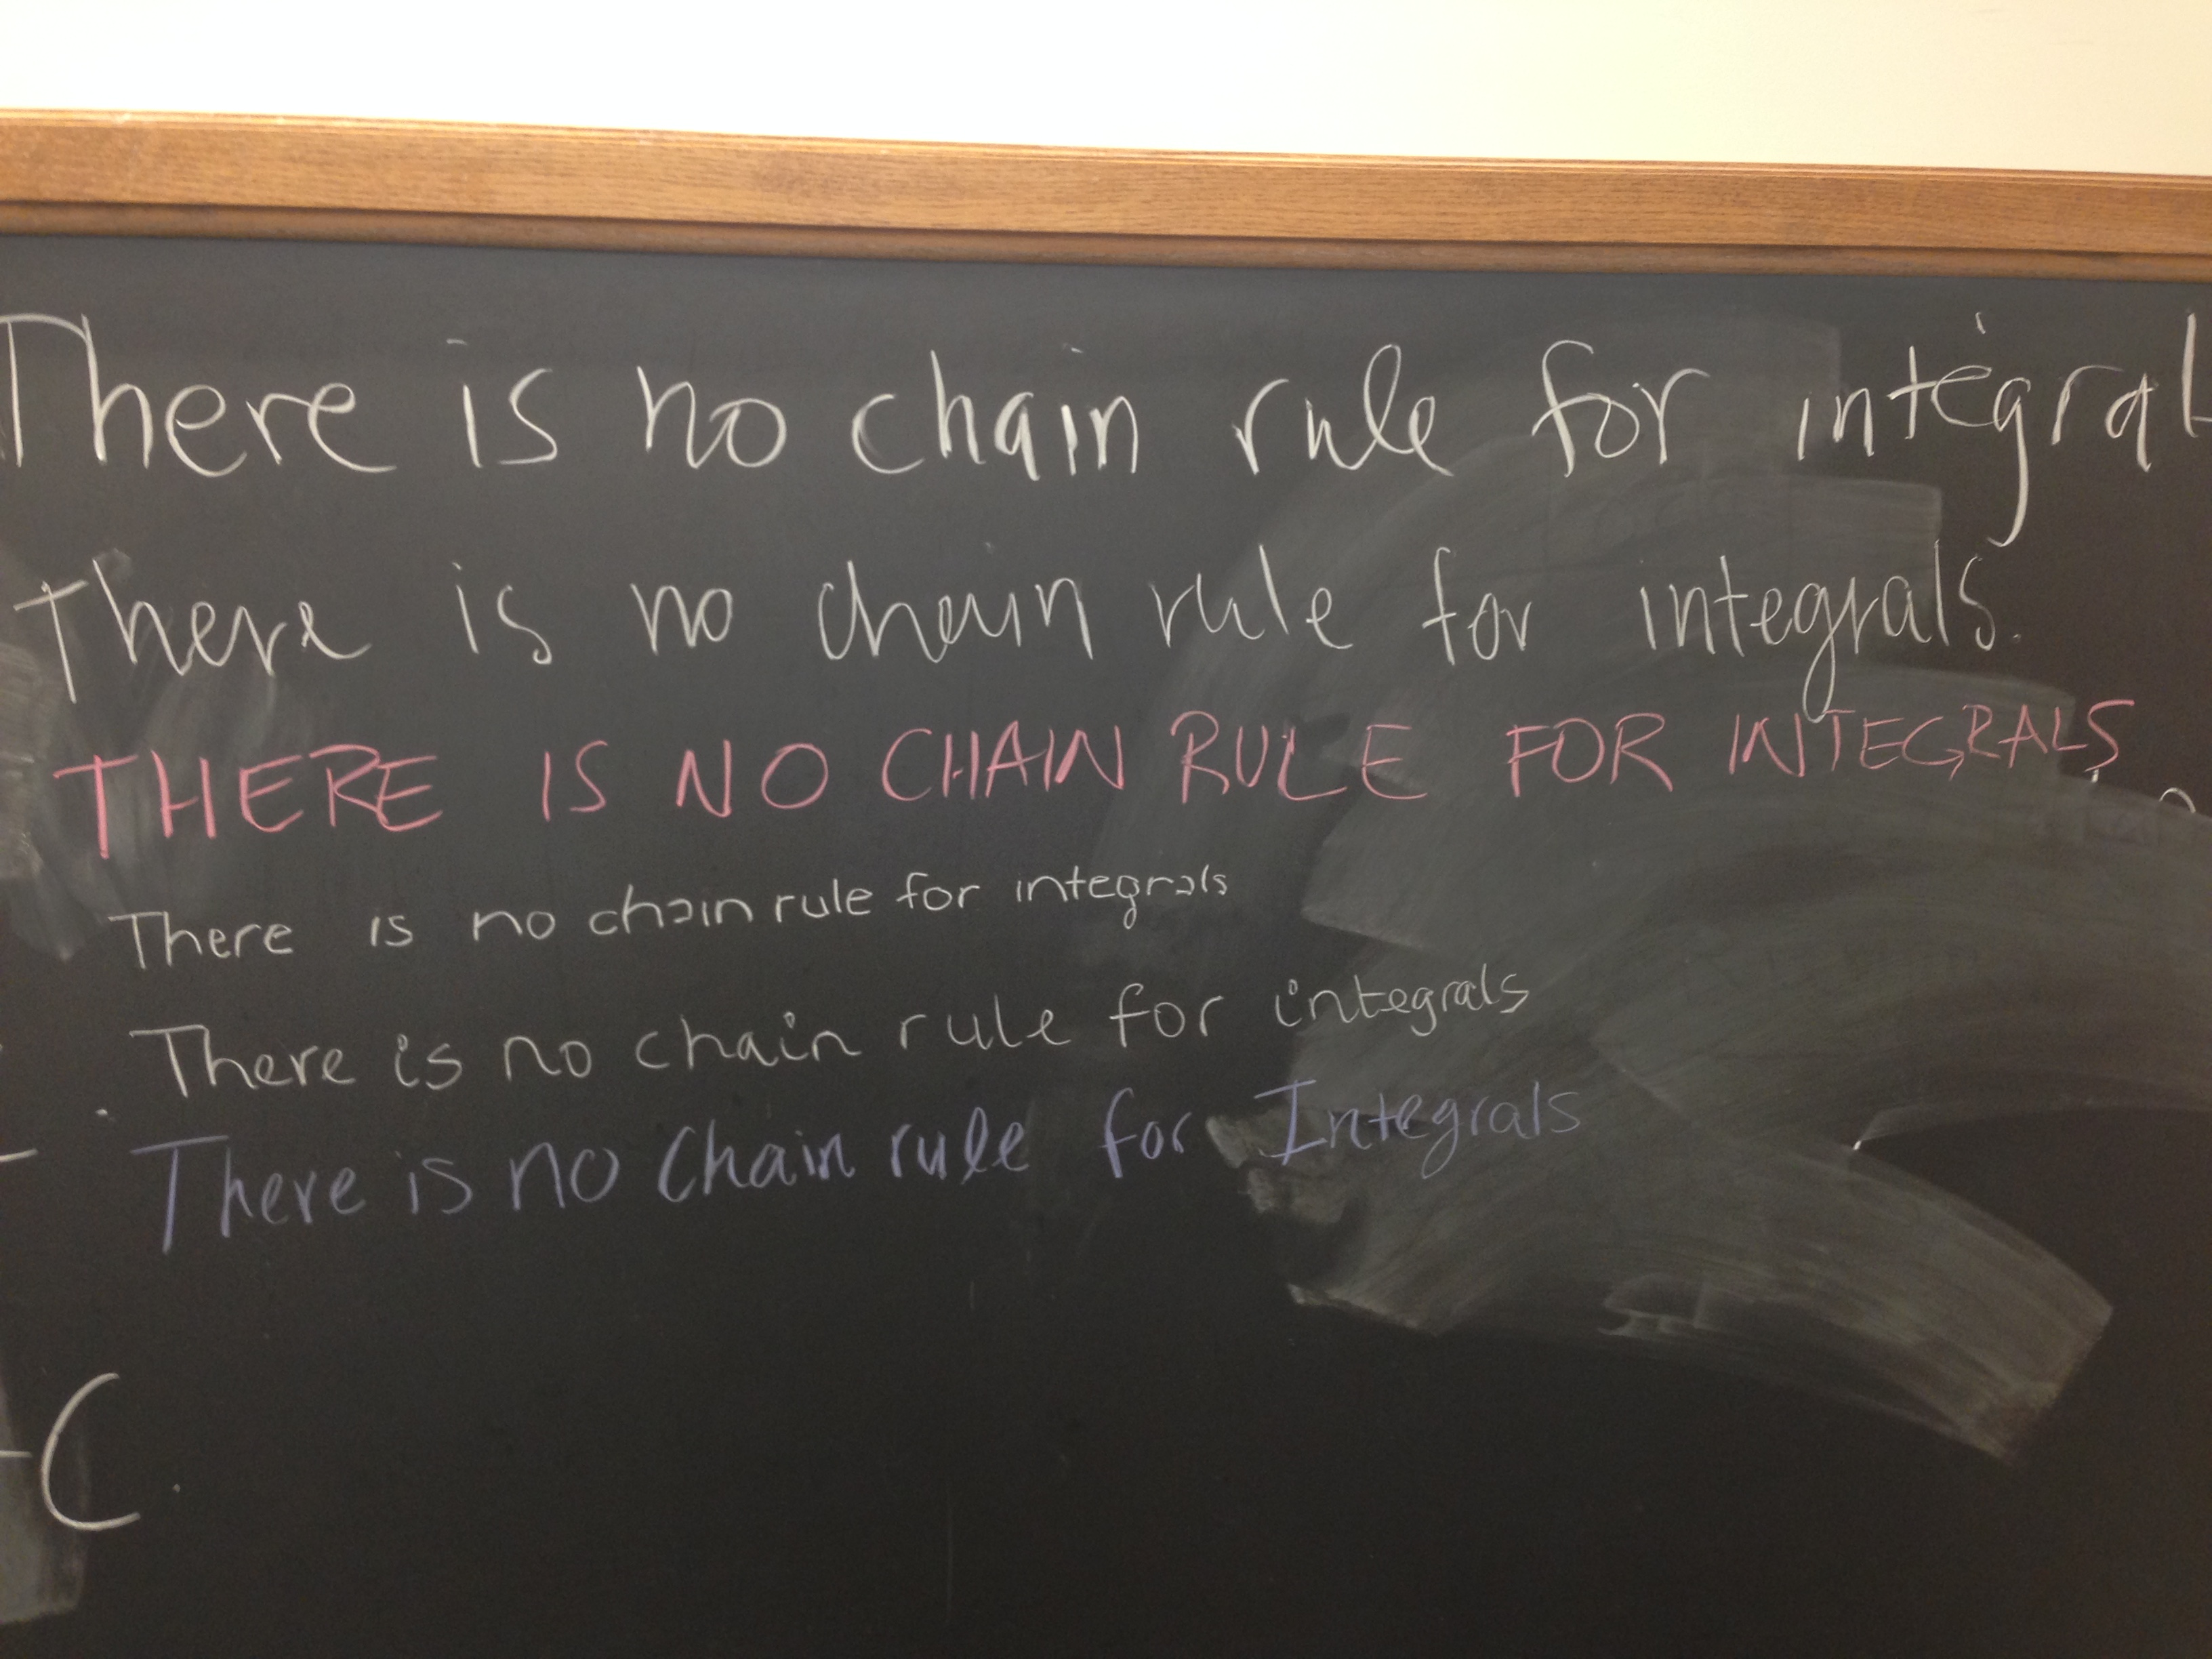 There is no chain rule for integral
There is no chain rule for integrals.
THERE IS NO CHAIN RULE FOR INTEGRALS
There is no chain rule for integrals
There is no chain rule for integrals
There is no Chain rule for Integrals
C